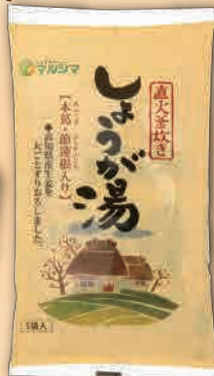 マルシマ
直火釜炊き
しょうが湯
【本葛・節蓮根入り】
●高知県産生姜を
丸ごとすりおろしました。
5袋入